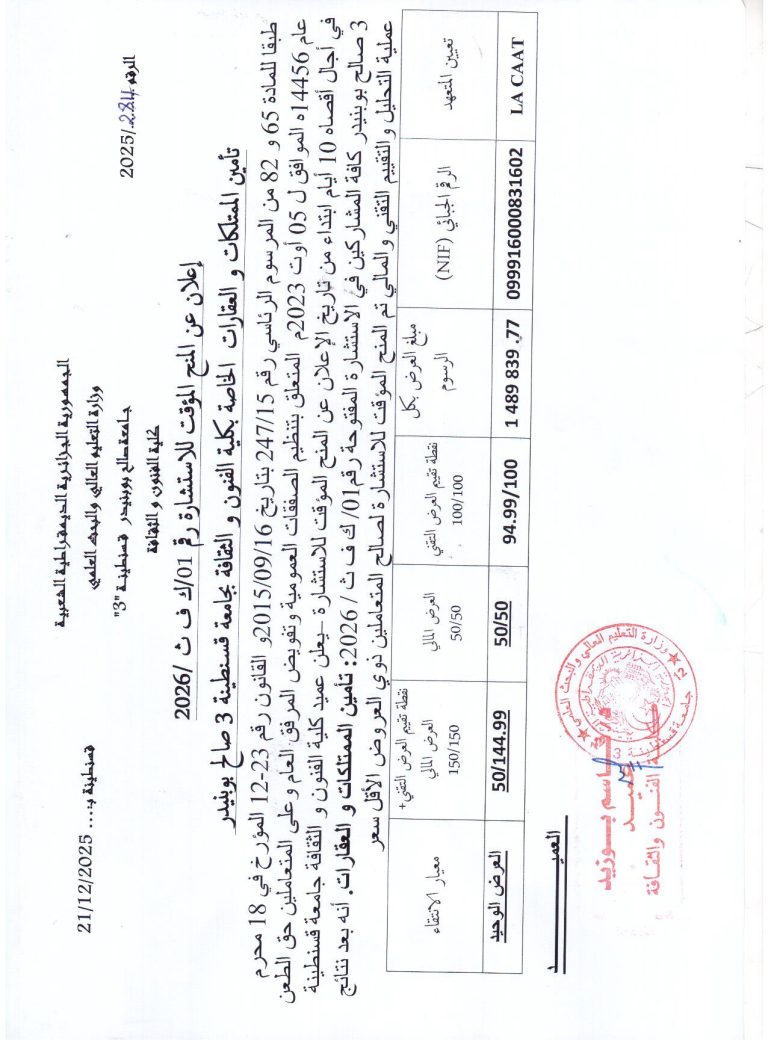 الجمهورية الجزائرية الديمقراطية الشعبية
وزارة التعليم العالي والبحث العلمي
جامعة صالح بوبنيدر قسنطينة "3"
كلية الفنون و الثقافة
الرقم 284/2025
قسنطينة ب.... 21/12/2025
إعلان عن المنح المؤقت للاستشارة رقم 01/ك ف ث /2026
تأمين الممتلكات و العقارات الخاصة بكلية الفنون و الثقافة بجامعة قسنطينة 3 صالح بوبنيدر
طبقا للمادة 65 و 82 من المرسوم الرئاسي رقم 247/15 بتاريخ 2015/09/16و القانون رقم 23-12 المؤرخ في 18 محرم
عام 14456ه الموافق ل 05 أوت 2023م المتعلق بتنظيم الصفقات العمومية وتفويض المرفق العام و على المتعاملين حق الطعن
في أجال أقصاه 10 أيام ابتداء من تاريخ الإعلان عن المنح المؤقت للاستشارة –يعلن عميد كلية الفنون و الثقافة جامعة قسنطينة
3 صالح بوبنيدر كافة المشاركين في الاستشارة المفتوحة رقم01/ ك ف ث / 2026: تأمين الممتلكات و العقارات. أنه بعد نتائج
عملية التحليل و التقييم التقني و المالي تم المنح المؤقت للاستشارة لصالح المتعاملين ذوي العروض الأقل سعر
تعيين المتعهد | الرقم الجبائي (NIF) | مبلغ العرض بكل الرسوم | نقطة تقييم العرض التقني 100/100 | العرض المالي 50/50 | نقطة تقييم العرض التقني+ العرض المالي 150/150 | معيار الانتقاء
LA CAAT | 099916000831602 | 1 489 839 .77 | 94.99/100 | 50/50 | 50/144.99 | العرض الوحيد
العميـــــــد
وزارة التعليم العالي و البحث العلمي
جامعة قسنطينة 3
12
بوزيد
عميد
كلية الفنـون والثقافة